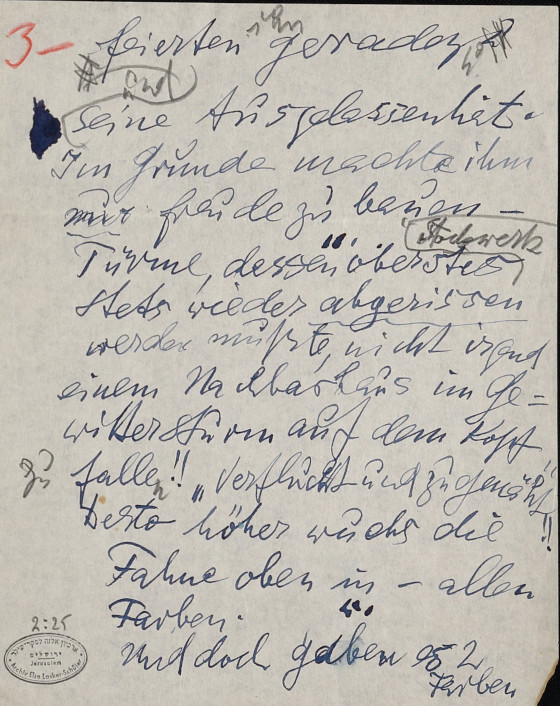 3-
feierten ihn geradezu
und
seine Ausgelassenheit.
Im Grunde machte ihm
nur freude zu bauen -
Stockwerk
Türme, dessen oberstes
stets wieder abgerissen
werden mußte, nicht irgend
einem Nachbarhaus im Ge=
wittersturm auf dem Kopf
zu fallen!! „Verflucht und zugenäht"!!
Desto höher wuchs die
Fahne oben in - allen
Farben.
Und doch gaben es 2
Farben
2:25
Jerusalem
Archiv Else Lasker-Schüler